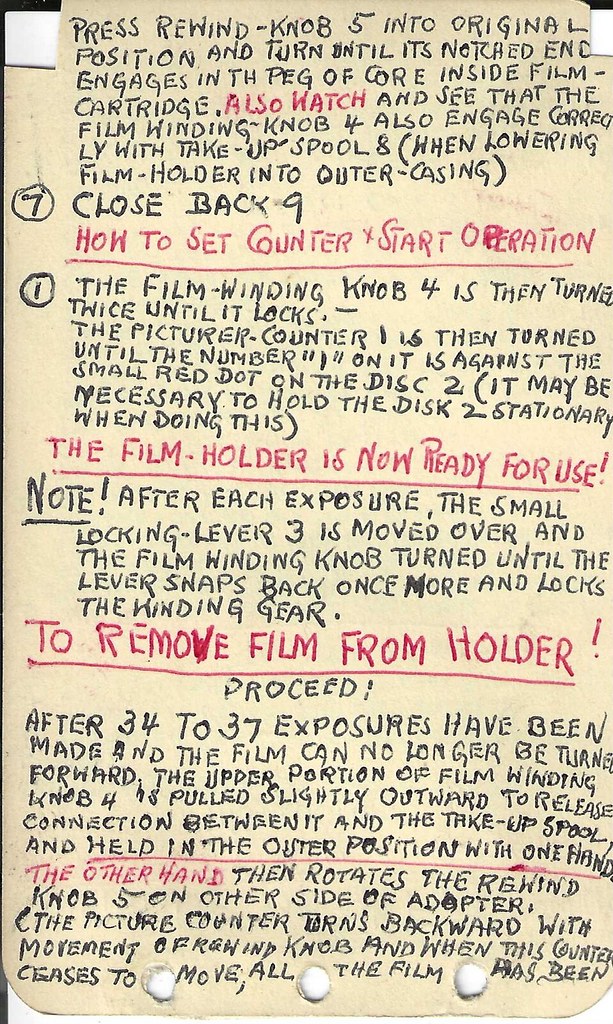 PRESS REWIND-KNOB 5 INTO ORIGINAL
POSITION AND TURN UNTIL ITS NOTCHED END
ENGAGES IN TH PEG OF CORE INSIDE FILM-
CARTRIDGE. ALSO WATCH AND SEE THAT THE
FILM WINDING-KNOB 4 ALSO ENGAGE CORRECT
LY WITH TAKE-UP SPOOL 8 (WHEN LOWERING
FILM-HOLDER INTO OUTER-CASING)
7 CLOSE BACK 9
HOW TO SET COUNTER & START OPERATION
1 THE FILM-WINDING KNOB 4 IS THEN TURNED
TWICE UNTIL IT LOCKS. —
THE PICTURER-COUNTER 1 IS THEN TURNED
UNTIL THE NUMBER "1" ON IT IS AGAINST THE
SMALL RED DOT ON THE DISC 2 (IT MAY BE
NECESSARY TO HOLD THE DISK 2 STATIONARY
WHEN DOING THIS)
THE FILM-HOLDER IS NOW READY FOR USE!
NOTE! AFTER EACH EXPOSURE, THE SMALL
LOCKING-LEVER 3 IS MOVED OVER AND
THE FILM WINDING KNOB TURNED UNTIL THE
LEVER SNAPS BACK ONCE MORE AND LOCKS
THE WINDING GEAR.
TO REMOVE FILM FROM HOLDER!
PROCEED!
AFTER 34 TO 37 EXPOSURES HAVE BEEN
MADE AND THE FILM CAN NO LONGER BE TURNED
FORWARD, THE UPPER PORTION OF FILM WINDING
KNOB 4 IS PULLED SLIGHTLY OUTWARD TO RELEASE
CONNECTION BETWEEN IT AND THE TAKE-UP SPOOL,
AND HELD IN THE OUTER POSITION WITH ONE HAND.
THE OTHER HAND THEN ROTATES THE REWIND
KNOB 5 ON OTHER SIDE OF ADOPTER.
(THE PICTURE COUNTER TURNS BACKWARD WITH
MOVEMENT OF REWIND KNOB AND WHEN THIS COUNTER
CEASES TO MOVE, ALL THE FILM HAS BEEN